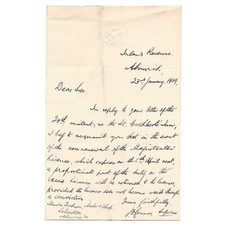 Inland Revenue
Alnwick
23rd January, 1909.
Dear Sir,
In reply to your letter of the
22nd instant, as to St. Cuthbert's Inn,
I beg to acquaint you that in the event
of the non-renewal of the Magistrates'
Licence, which expires on the 5th April next, a
proportionate part of the duty on the
Excise licence will be returned to the licensee
provided the licence does not become void through
a conviction.
Yours faithfully,
Solicitors